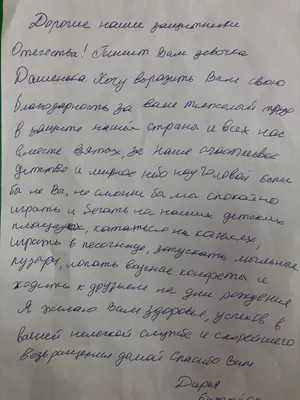 Дорогие наши защитники
Отечества! Пишит Вам девочка
Дашенька Хочу выразить Вам свою
благодарность за ваш тяжелый труд
в защите нашей страны и всех нас
вместе взятых, за наше счастливое
детство и мирное небо над головой Если
бы не Вы, не смогли бы мы спокойно
играть и бегать на наших детских
площадках, кататься на качелях,
играть в песочнице, запускать мыльные
пузыри, лопать вкусные конфеты и
ходить к друзьям на дни рождения
Я желаю Вам здоровья, успехов в
вашей нелегкой службе и скорейшего
возвращения домой Спасибо Вам
Дарья